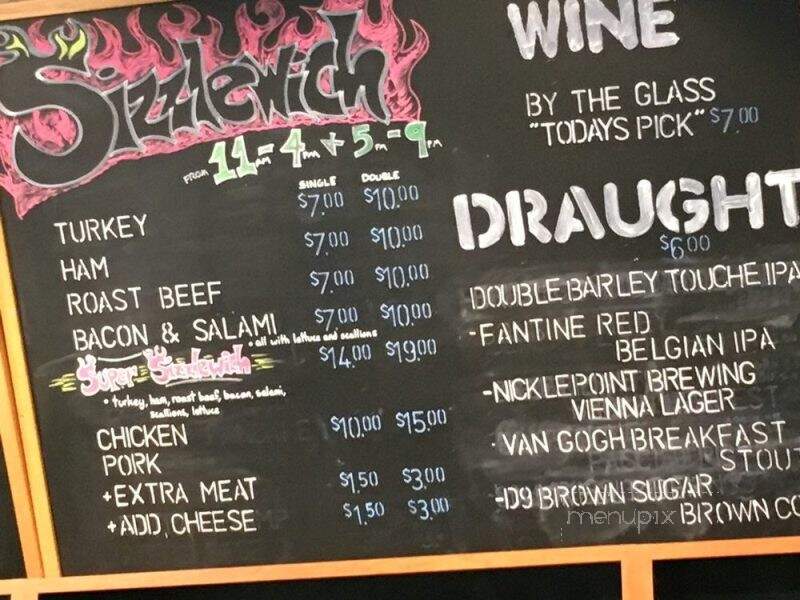 Sizzlewich
FROM 11am-4pm + 5pm-9pm
SINGLE DOUBLE
TURKEY $7.00 $10.00
HAM $7.00 $10.00
ROAST BEEF $7.00 $10.00
BACON & SALAMI $7.00 $10.00
* all with lettuce and scallions
Super Sizzlewich $14.00 $19.00
* turkey, ham, roast beef, bacon, salami,
scallions, lettuce
CHICKEN $10.00 $15.00
PORK
+EXTRA MEAT $1.50 $3.00
+ADD CHEESE $1.50 $3.00
WINE
BY THE GLASS
"TODAYS PICK" $7.00
DRAUGHT
$6.00
DOUBLE BARLEY TOUCHE IPA
-FANTINE RED
BELGIAN IPA
-NICKLEPOINT BREWING
VIENNA LAGER
-VAN GOGH BREAKFAST
STOUT
-D9 BROWN SUGAR
BROWN CO
menupix